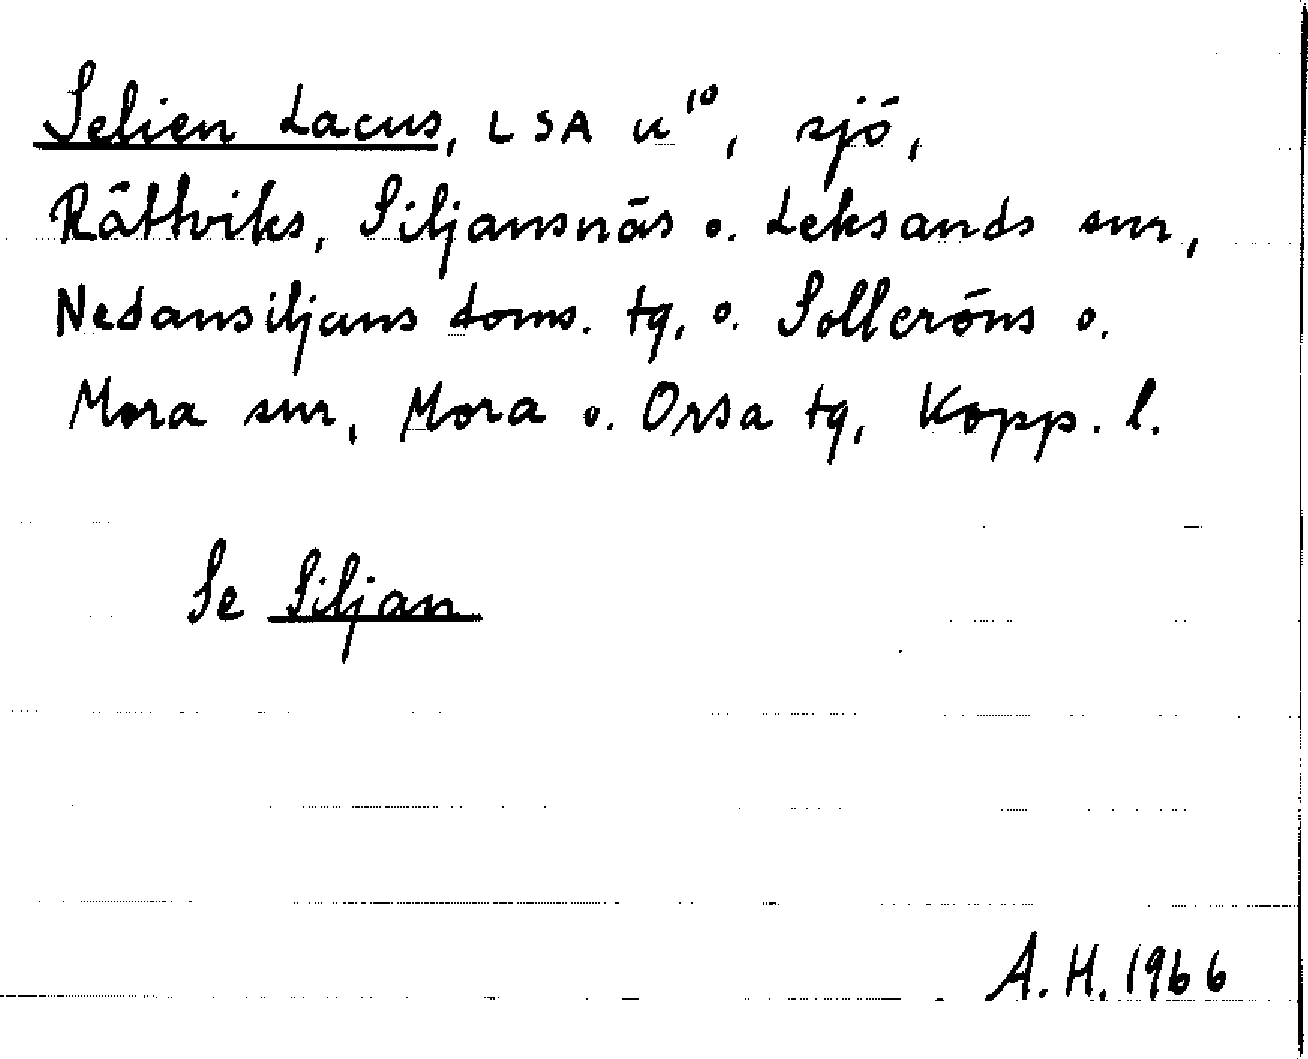 Selien Lacus, LSA u¹⁰, sjö,
Rättviks, Siljansnäs o. Leksands snr,
Nedansiljans doms. tg, o. Solleröns o.
Mora snr, Mora o. Orsa tg, Kopp. l.
Se Siljan
A. H. 1966